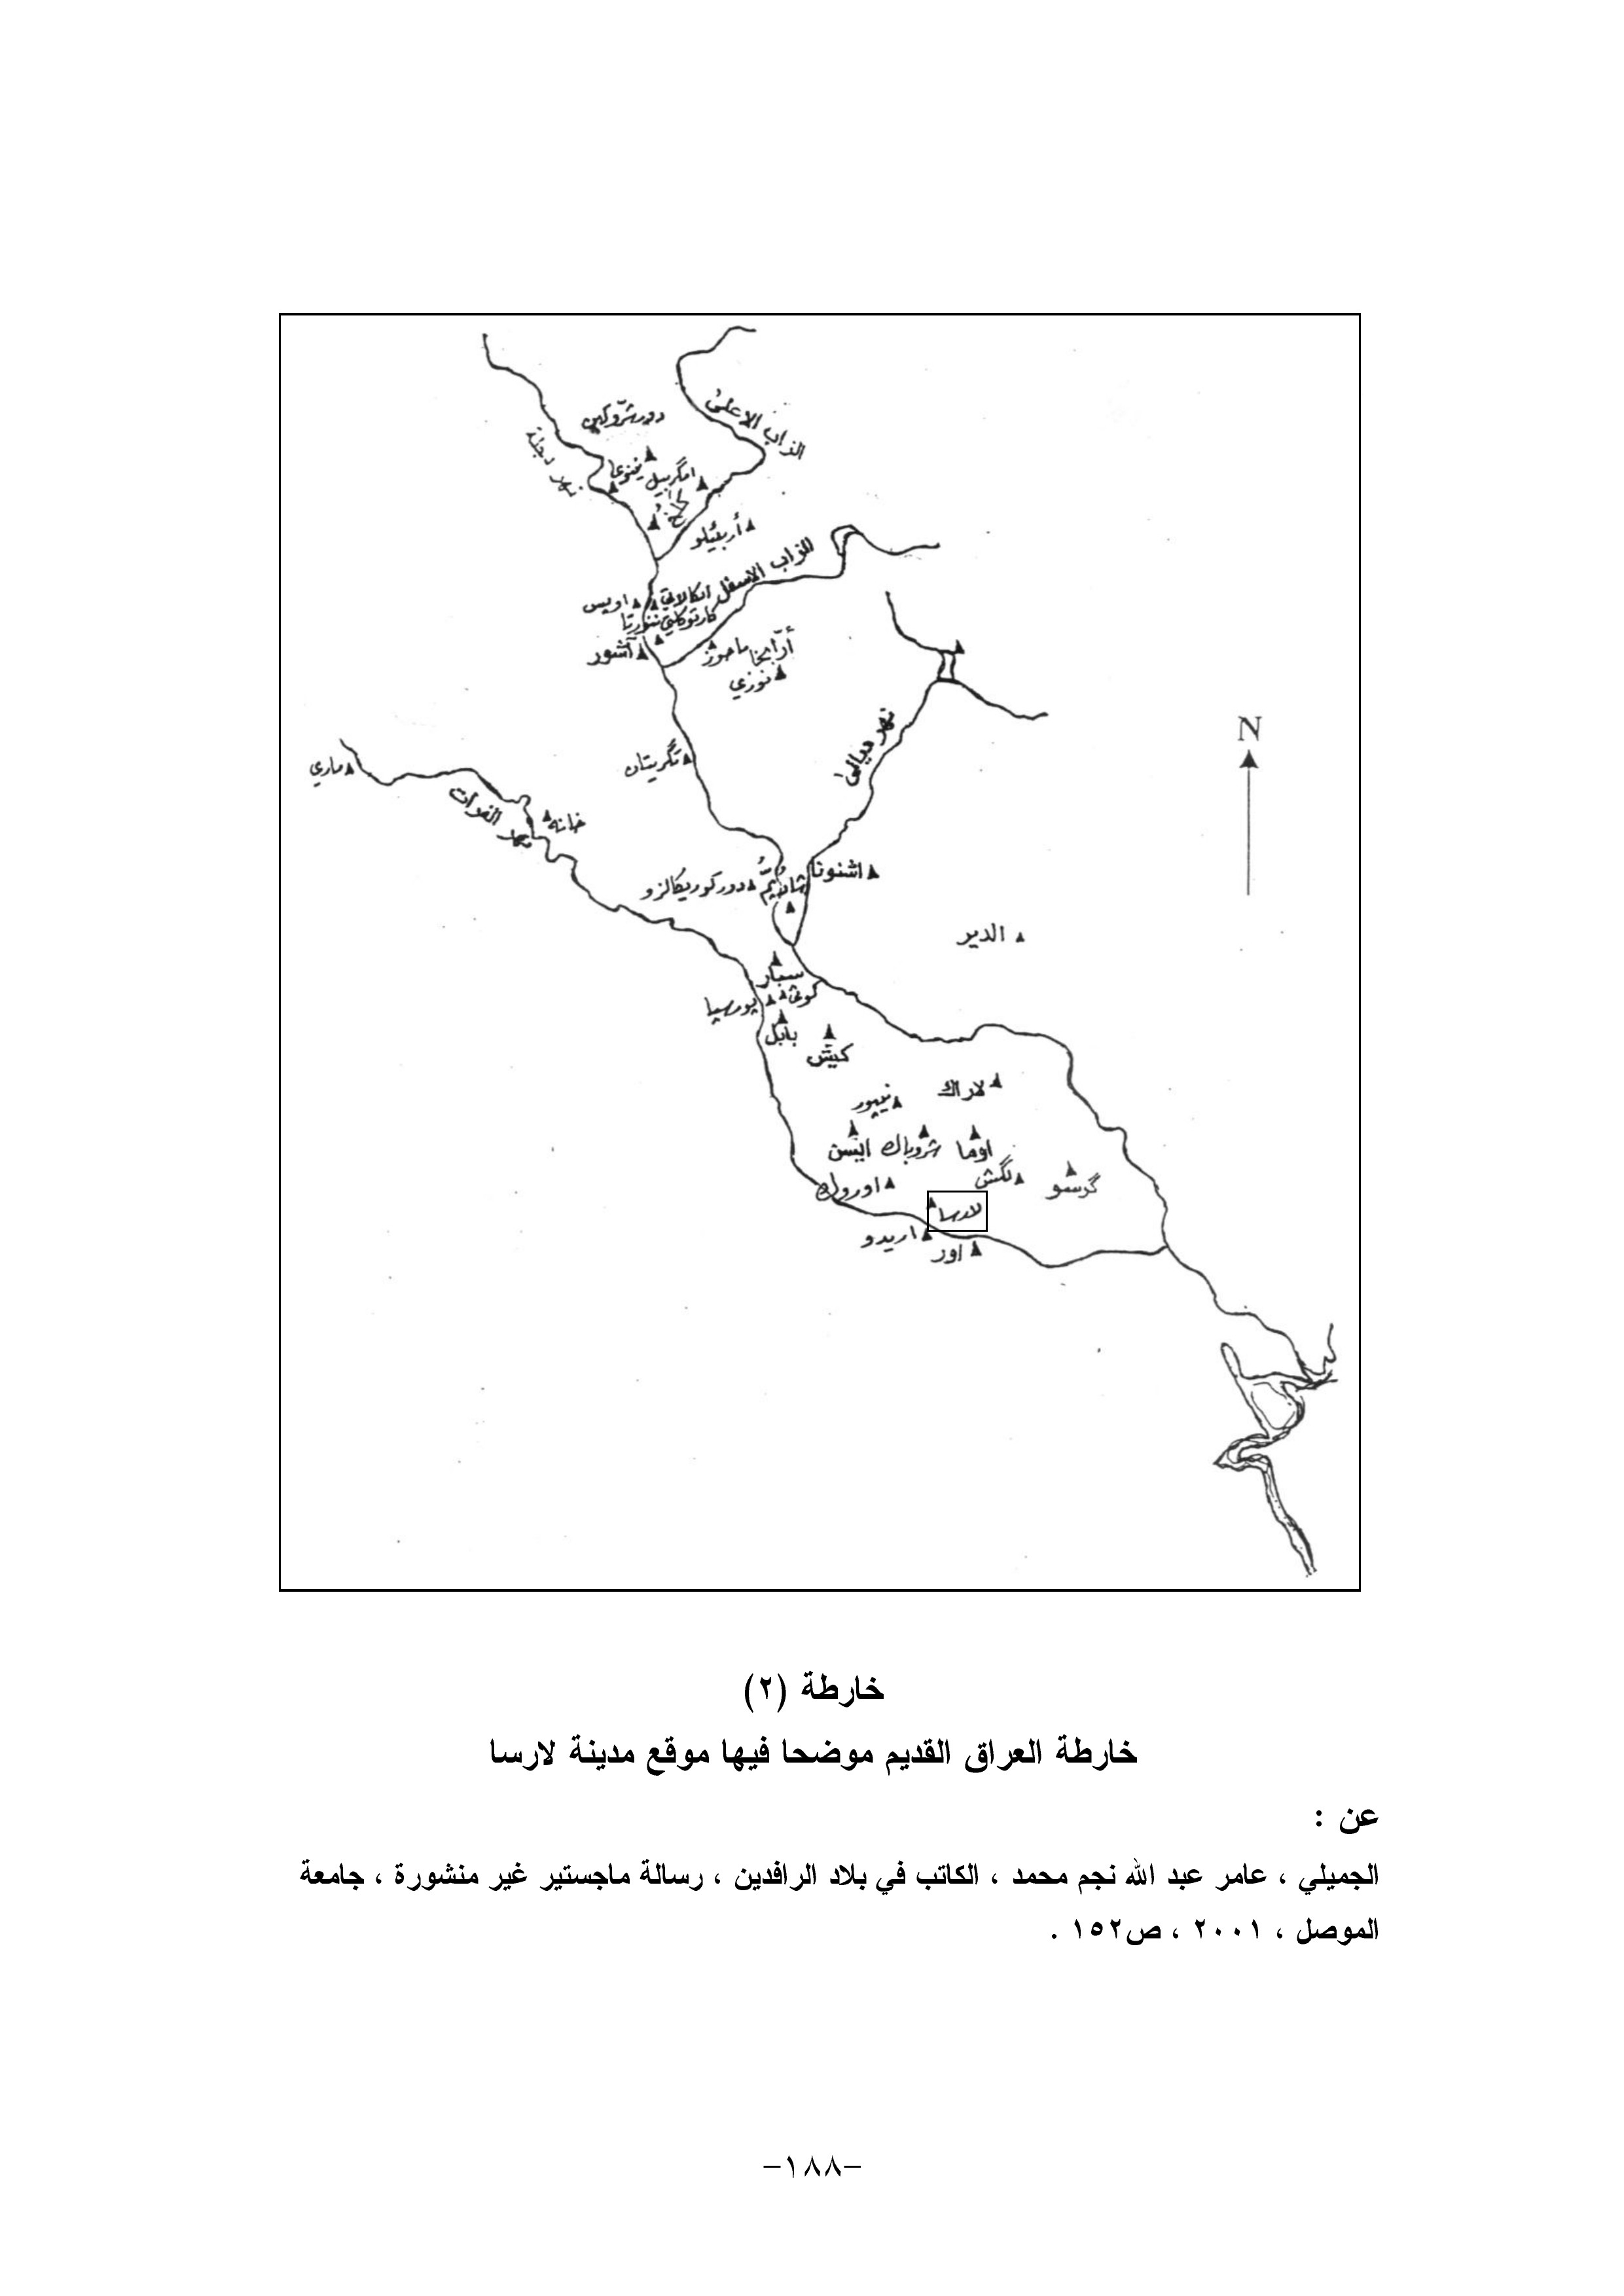 الزاب الاعلى
دورشروكين
نهر دجلة
نينوى
امگربيل
كالخ
أربئيلو
الزاب الاسفل
ايكالاتي
اوبس
كارتوكلتي ننورتا
آشور
أرابخا
ماحوز
نوزي
نهر ديالى
تگريتان
N
ماري
نهر الفرات
خانه
اشنونا
شادبم
دوركوريكالزو
الدير
سبار
كوثى
بورسيا
بابل
كيش
لاراك
نيپور
اوما
شروباك
ايسن
لگش
گرسو
اوروك
لارسا
اريدو
اور
خارطة (٢)
خارطة العراق القديم موضحا فيها موقع مدينة لارسا
عن :
الجميلي ، عامر عبد الله نجم محمد ، الكاتب في بلاد الرافدين ، رسالة ماجستير غير منشورة ، جامعة
الموصل ، ٢٠٠١ ، ص١٥٢ .
-١٨٨-